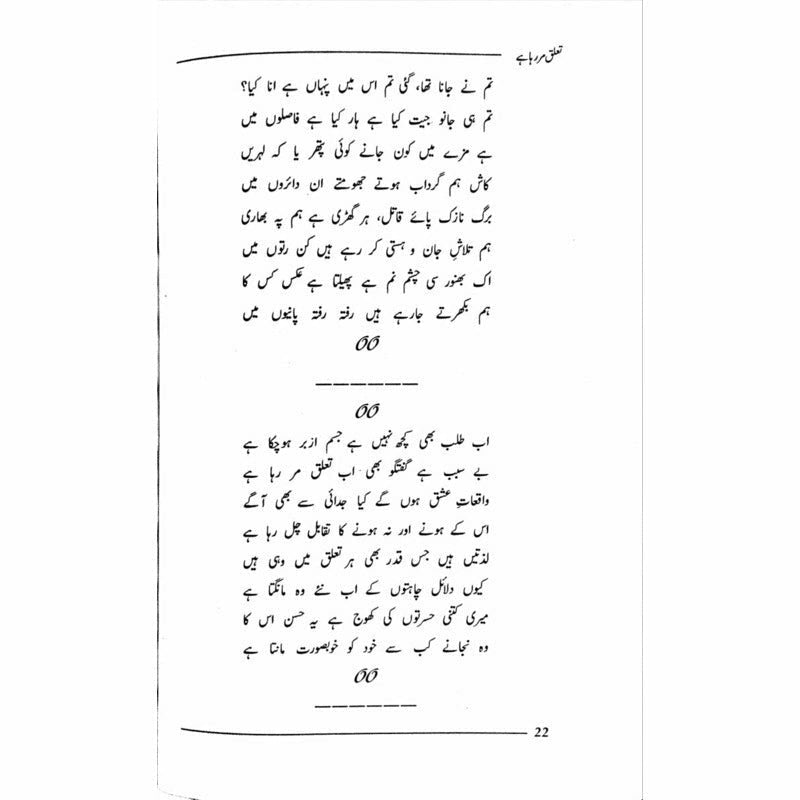 تعلق مر رہا ہے
تم نے جانا تھا، گئی تم اس میں پنہاں ہے انا کیا؟
تم ہی جانو جیت کیا ہے ہار کیا ہے فاصلوں میں
ہے مزے میں کون جانے کوئی پتھر یا کہ لہریں
کاش ہم گرداب ہوتے جھومتے ان دائروں میں
برگ نازک پائے قاتل، ہر گھڑی ہے ہم پہ بھاری
ہم تلاشِ جان و ہستی کر رہے ہیں کن رتوں میں
اک بھنور سی چشم نم ہے پھیلتا ہے عکس کس کا
ہم بکھرتے جارہے ہیں رفتہ رفتہ پانیوں میں
اب طلب بھی کچھ نہیں ہے جسم ازبر ہوچکا ہے
بے سبب ہے گفتگو بھی اب تعلق مر رہا ہے
واقعاتِ عشق ہوں گے کیا جدائی سے بھی آگے
اس کے ہونے اور نہ ہونے کا تقابل چل رہا ہے
لذتیں ہیں جس قدر بھی ہر تعلق میں وہی ہیں
کیوں دلائل چاہتوں کے اب نئے وہ مانگتا ہے
میری کتنی حسرتوں کی کھوج ہے یہ حسن اس کا
وہ نجانے کب سے خود کو خوبصورت مانتا ہے
22